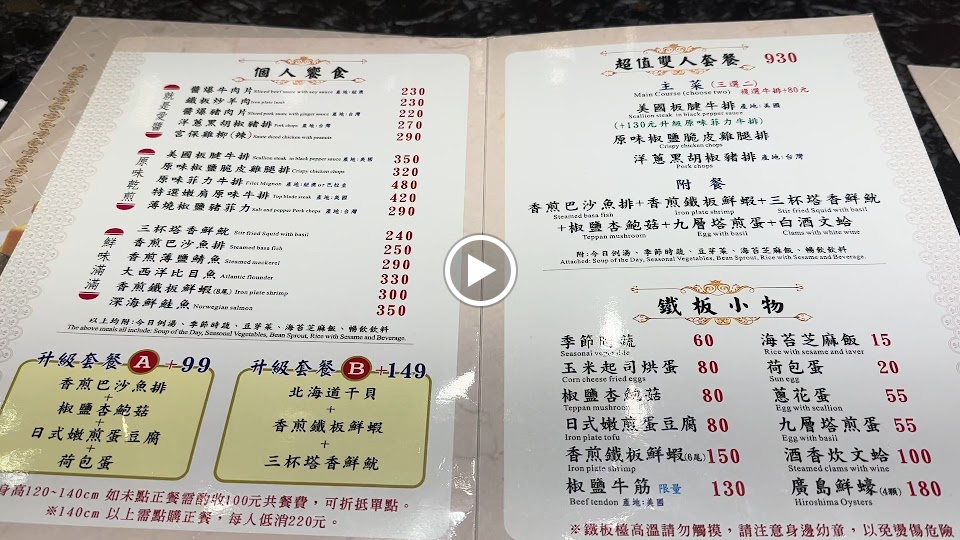 個人饗食
就是愛醬
醬爆牛肉片 Sliced beef sauce with soy sauce 產地:紐澳 230
鐵板炒羊肉 Iron plate lamb 230
醬爆豬肉片 Sliced pork sauce with ginger sauce 產地:台灣 220
洋蔥黑胡椒豬排 Pork chops 產地:台灣 270
宮保雞柳(辣) Saute diced chicken with peanuts 290
原味乾煎
美國板腱牛排 Scallion steak in black pepper sauce 產地:美國 350
原味椒鹽脆皮雞腿排 Crispy chicken chops 320
原味菲力牛排 Filet Mignon 產地:紐澳or巴拉圭 480
特選嫩肩原味牛排 Top blade steak 產地:美國 420
薄燒椒鹽豬菲力 Salt and pepper Pork chops 產地:台灣 290
鮮味滿滿
三杯塔香鮮魷 Stir fried Squid with basil 240
香煎巴沙魚排 Steamed basa fish 250
香煎薄鹽鯖魚 Steamed mackerel 290
大西洋比目魚 Atlantic flounder 330
香煎鐵板鮮蝦(8尾) Iron plate shrimp 300
深海鮮鮭魚 Norwegian salmon 350
以上均附:今日例湯、季節時蔬、豆芽菜、海苔芝麻飯、暢飲飲料
The above meals all include: Soup of the Day, Seasonal Vegetables, Bean Sprout, Rice with Sesame and Beverage.
升級套餐 A +99
香煎巴沙魚排
+
椒鹽杏鮑菇
+
日式嫩煎蛋豆腐
+
荷包蛋
升級套餐 B +149
北海道干貝
+
香煎鐵板鮮蝦
+
三杯塔香鮮魷
身高120~140cm 如未點正餐需酌收100元共餐費，可折抵單點。
※140cm 以上需點購正餐，每人低消220元。
超值雙人套餐 930
主菜 (三選二)
Main Course (choose two) 複選牛排+80元
美國板腱牛排 產地:美國
Scallion steak in black pepper sauce
(+130元升級原味菲力牛排)
原味椒鹽脆皮雞腿排
Crispy chicken chops
洋蔥黑胡椒豬排 產地:台灣
Pork chops
附餐
香煎巴沙魚排+香煎鐵板鮮蝦+三杯塔香鮮魷
Steamed basa fish Iron plate shrimp Stir fried Squid with basil
+椒鹽杏鮑菇+九層塔煎蛋+白酒文蛤
Teppan mushroom Egg with basil Clams with white wine
附:今日例湯、季節時蔬、豆芽菜、海苔芝麻飯、暢飲飲料
Attached: Soup of the Day, Seasonal Vegetables, Bean Sprout, Rice with Sesame and Beverage.
鐵板小物
季節時蔬 60
Seasonal vegetable
玉米起司烘蛋 80
Corn cheese fried eggs
椒鹽杏鮑菇 80
Teppan mushroom
日式嫩煎蛋豆腐 80
Iron plate tofu
香煎鐵板鮮蝦(6尾) 150
Iron plate shrimp
椒鹽牛筋 限量 130
Beef tendon 產地:美國
海苔芝麻飯 15
Rice with sesame and laver
荷包蛋 20
Sun egg
蔥花蛋 55
Egg with scallion
九層塔煎蛋 55
Egg with basil
酒香炊文蛤 100
Steamed clams with wine
廣島鮮蠔(4顆) 180
Hiroshima Oysters
※鐵板檯高溫請勿觸摸，請注意身邊幼童，以免燙傷危險